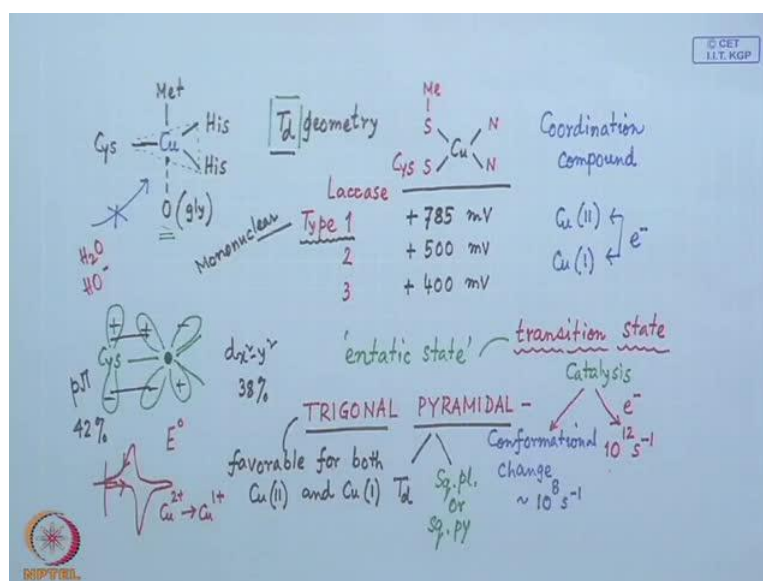 © CET
I.I.T. KGP
Met
Cys Cu His
His
O (gly)
H2O
HO⁻
Td geometry
Me
S N
Cu
Cys S N
Coordination
Compound
Laccase
Mononuclear Type 1 + 785 mV
2 + 500 mV
3 + 400 mV
Cu (II)
Cu (I) e⁻
+ + -
Cys
- - +
pπ
42%
dx²-y²
38%
'entatic state' transition state
Catalysis
e⁻
10¹² s⁻¹
Conformational
Change
~ 10⁸ s⁻¹
TRIGONAL PYRAMIDAL -
favorable for both
Cu (II) and Cu (I) Td
Sq. pl.
or
Sq. py
E°
Cu²⁺ → Cu¹⁺
NPTEL